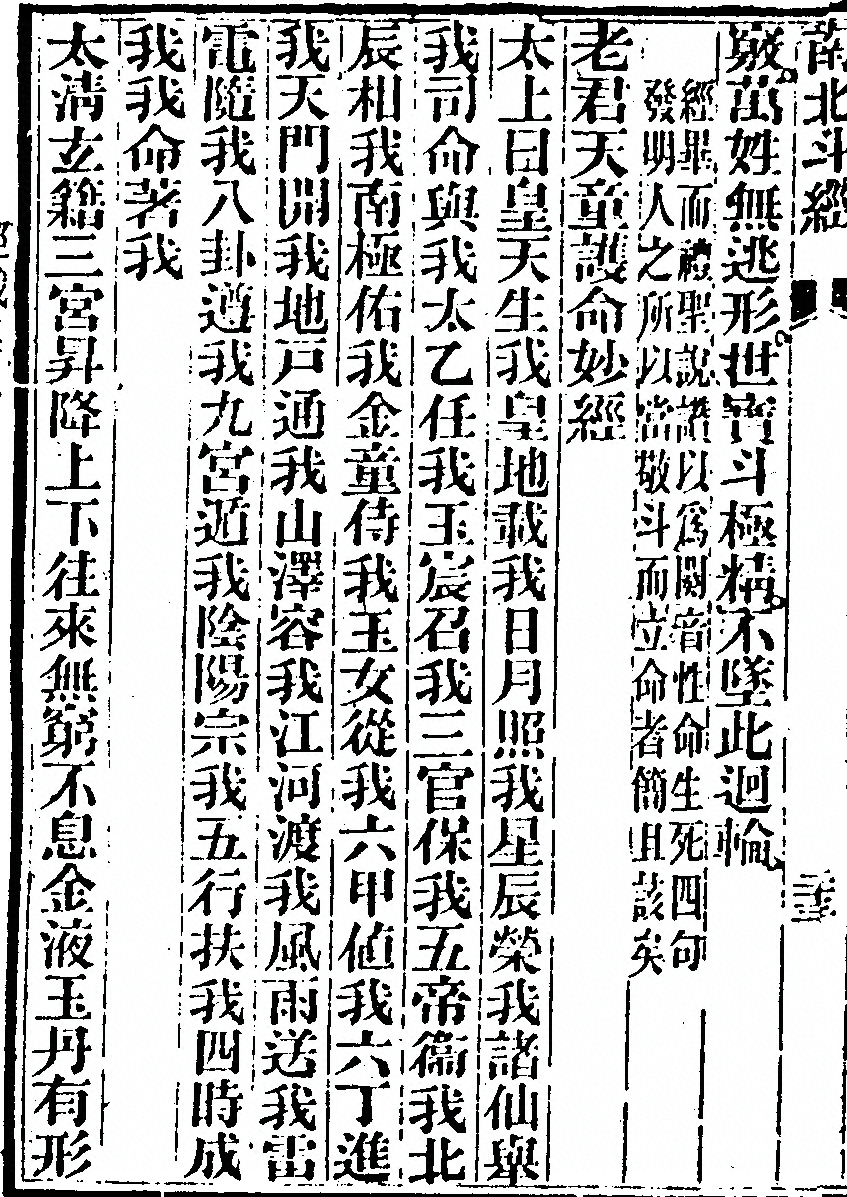 南北斗經
嶽萬姓無逃形世寶斗極精不墜此迴輪
經畢而禮聖說讚以爲闕音性命生死四句
發明人之所以當敬斗而立命者簡且該矣
老君天童護命妙經
太上曰皇天生我皇地載我日月照我星辰榮我諸仙舉
我司命與我太乙任我玉宸召我三官保我五帝衞我北
辰相我南極佑我金童侍我玉女從我六甲値我六丁進
我天門開我地戸通我山澤容我江河渡我風雨送我雷
電隨我八卦遵我九宮遁我陰陽宗我五行扶我四時成
我我命著我
太淸立籍三宮昇降上下往來無窮不息金液玉丹有形